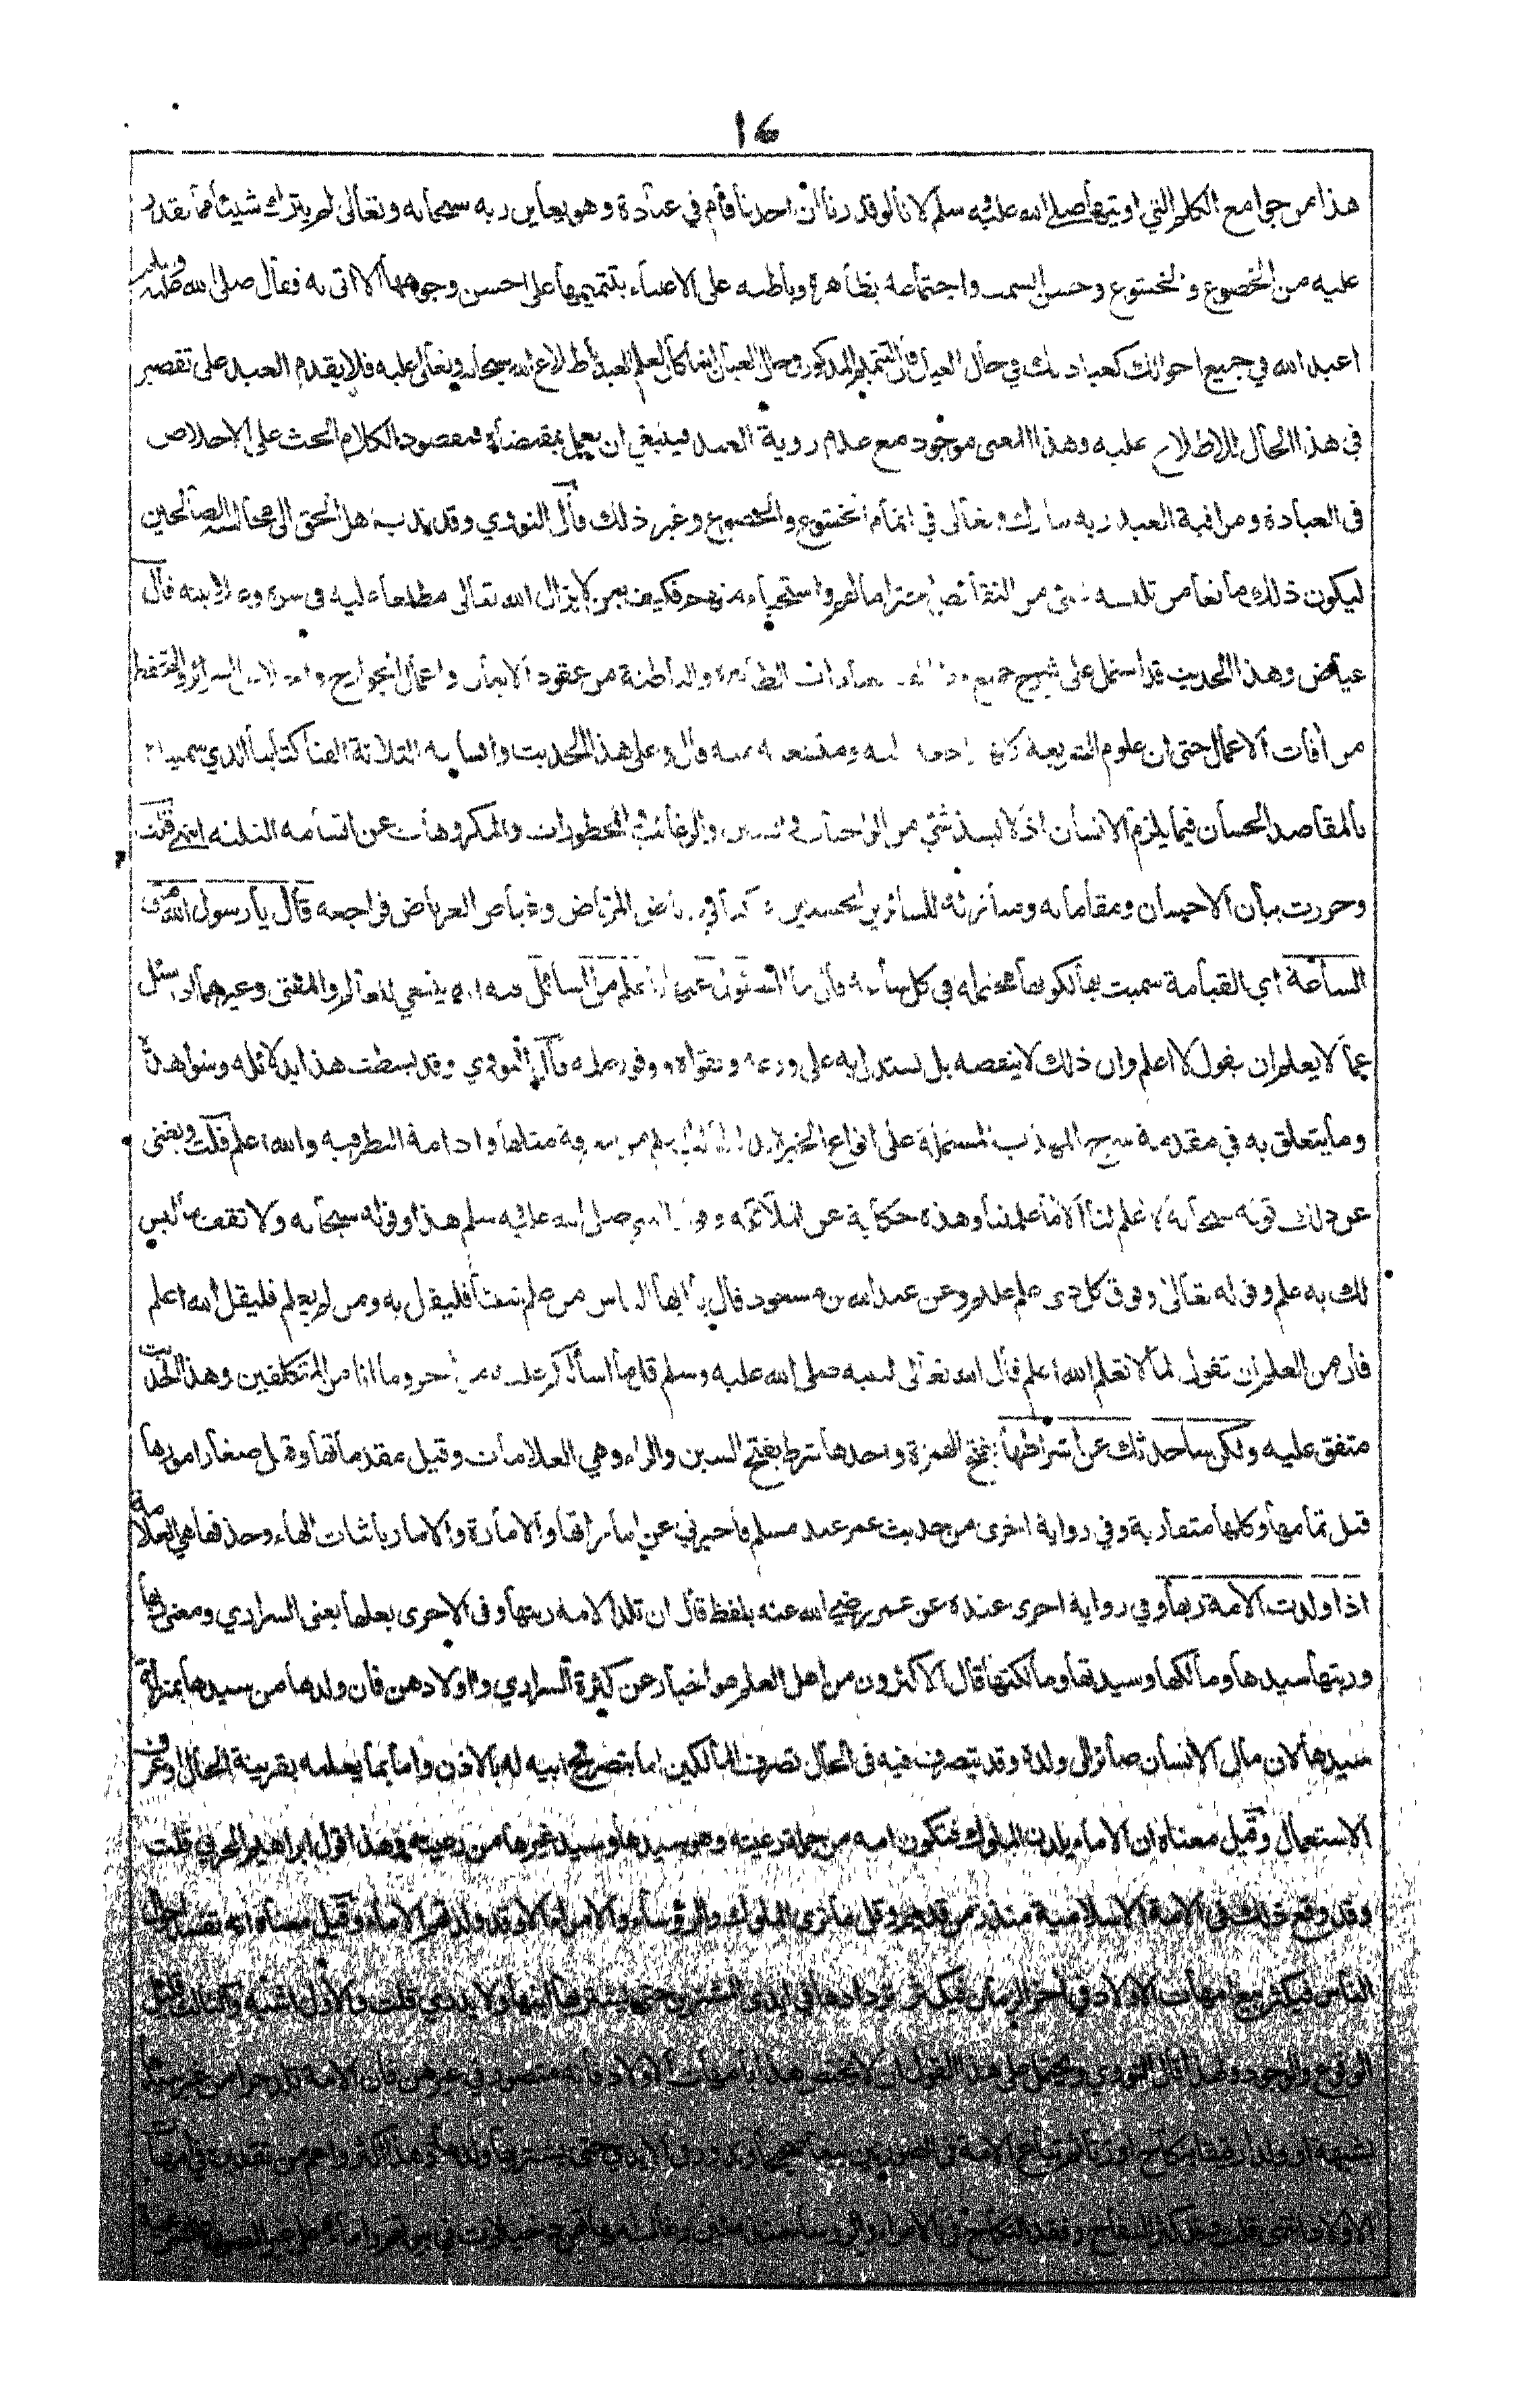 ١٤
هذا من جوامع الكلم التي اوتيها صلى الله عليه وسلم لانا لو قدرنا ان احدنا قام في عبادة وهو يعاين ربه سبحانه وتعالى لم يترك شيئا مما يقدر
عليه من الخضوع والخشوع وحسن السمت واجتماعه بظاهره وباطنه على الاعتناء بتتميمها على احسن وجوهها الا اتى به فقال صلى الله عليه وسلم
اعبد الله في جميع احوالك كعبادتك في حال العيان فان التتميم المذكور في حال العيان انما كان لعلم العبد باطلاع الله سبحانه وتعالى عليه فلا يقدم العبد على تقصير
في هذا الحال للاطلاع عليه وهذا المعنى موجود مع عدم روية العبد فينبغي ان يعمل بمقتضاه فمقصود الكلام الحث على الاخلاص
في العبادة ومراقبة العبد ربه تبارك وتعالى في اتمام الخشوع والخضوع وغير ذلك قال النووي وقد ندب اهل الحق الى مجالسة الصالحين
ليكون ذلك مانعا من تلبسه بشي من النقائص احتراما لهم واستحياء منهم فكيف بمن لا يزال الله تعالى مطلعا عليه في سره وعلانيته قال
عياض وهذا الحديث قد اشتمل على شرح جميع العبادات الظاهرة والباطنة من عقود الايمان واعمال الجوارح واخلاص السرائر والتحفظ
من آفات الاعمال حتى ان علوم الشريعة كلها راجعة اليه ومتشعبة منه قال وعلى هذا الحديث واقسامه الثلاثة الفنا كتابنا الذي سميناه
بالمقاصد الحسان فيما يلزم الانسان اذ لا يشذ شئ من الواجبات والسنن والرغائب والمحظورات والمكروهات عن اقسامه الثلثه انتهى قلت
وحررت بيان الاحسان ومقاماته للسائرين المحسنين في رياض المرتاض وغياض العرباض فراجعه قال يا رسول الله متى
الساعة اي القيامة سميت بها قال ما المسئول عنها باعلم من السائل فيه انه ينبغي للعالم والمفتى وغيرهما اذا سئل
عما لا يعلم ان يقول لا اعلم وان ذلك لا ينقصه بل يستدل به على ورعه وتقواه ووفور علمه قال النووي وقد بسطت هذا بدلائله وشواهده
وما يتعلق به في مقدمة شرح المهذب المشتملة على انواع الخير لا بد لطالب العلم من معرفة مثلها وادامة النظر فيه والله اعلم قلت ويغنى
عن ذلك قوله سبحانه لا علم لنا الا ما علمتنا وهذه حكاية عن الملائكة صلى الله عليه وسلم هذا وقوله سبحانه ولا تقف ما ليس
لك به علم وقوله تعالى وفوق كل ذى علم عليم وعن عبد الله بن مسعود قال يا ايها الناس من علم شيئا فليقل به ومن لم يعلم فليقل الله اعلم
فان من العلم ان تقول لما لا تعلم الله اعلم قال الله تعالى لنبيه صلى الله عليه وسلم قل ما اسألكم عليه من اجر وما انا من المتكلفين وهذا الحديث
متفق عليه ولكن ساحدثك عن اشراطها بفتح الهمزة واحدها شرط بفتح الشين والراء وهي العلامات وقيل مقدماتها وقيل صغار امورها
قبل تمامها وكلها متقاربة وفي رواية اخرى من حديث عمر عند مسلم فاخبرني عن اماراتها والامارة والامار باثبات الهاء وحذفها هي العلامة
اذا ولدت الامة ربها وفي رواية اخرى عنده عن عمر رضي الله عنه بلفظ قال ان تلد الامة ربتها وفي الاخرى بعلها يعنى السراري ومعنى ربها
وربتها سيدها ومالكها وسيدتها ومالكتها قال الاكثرون من اهل العلم هو اخبار عن كثرة السراري واولادهن فان ولدها من سيدها بمنزلة
سيدها لان مال الانسان صائر الى ولده وقد يتصرف فيه في الحال تصرف المالكين اما بتصريح ابيه له بالاذن واما بما يعلمه بقرينة الحال او عرف
الاستعمال وقيل معناه ان الاماء يلدن الملوك فتكون امه من جملة رعيته وهو سيدها وسيد غيرها من رعيته وهذا قول ابراهيم الحربي قلت
وقد وقع ذلك في الامة الاسلامية منذ زمن قديم وقل ما نرى الملوك والرؤساء والامراء الا وقد ولدتهم الاماء وقيل معناه انه تفسد احوال
الناس فيكثر بيع امهات الاولاد في آخر الزمان فيكثر تردادها في ايدى المشترين حتى يشتريها ابنها ولا يدري قلت والاول اشبه
الوقوع والوجود ولهذا قال النووي ويحتمل على هذا القول ان لا يختص هذا بامهات الاولاد فانه متصور في غيرهن فان الامة تلد حرا من غير سيدها
بشبهة او ولدا رقيقا بنكاح او زنا ثم تباع الامة في الصورتين بيعا صحيحا وتدور في الايدي حتى يشتريها ولدها وهذا اكثر واعم من تقديره في امهات
الاولاد انتهى قلت